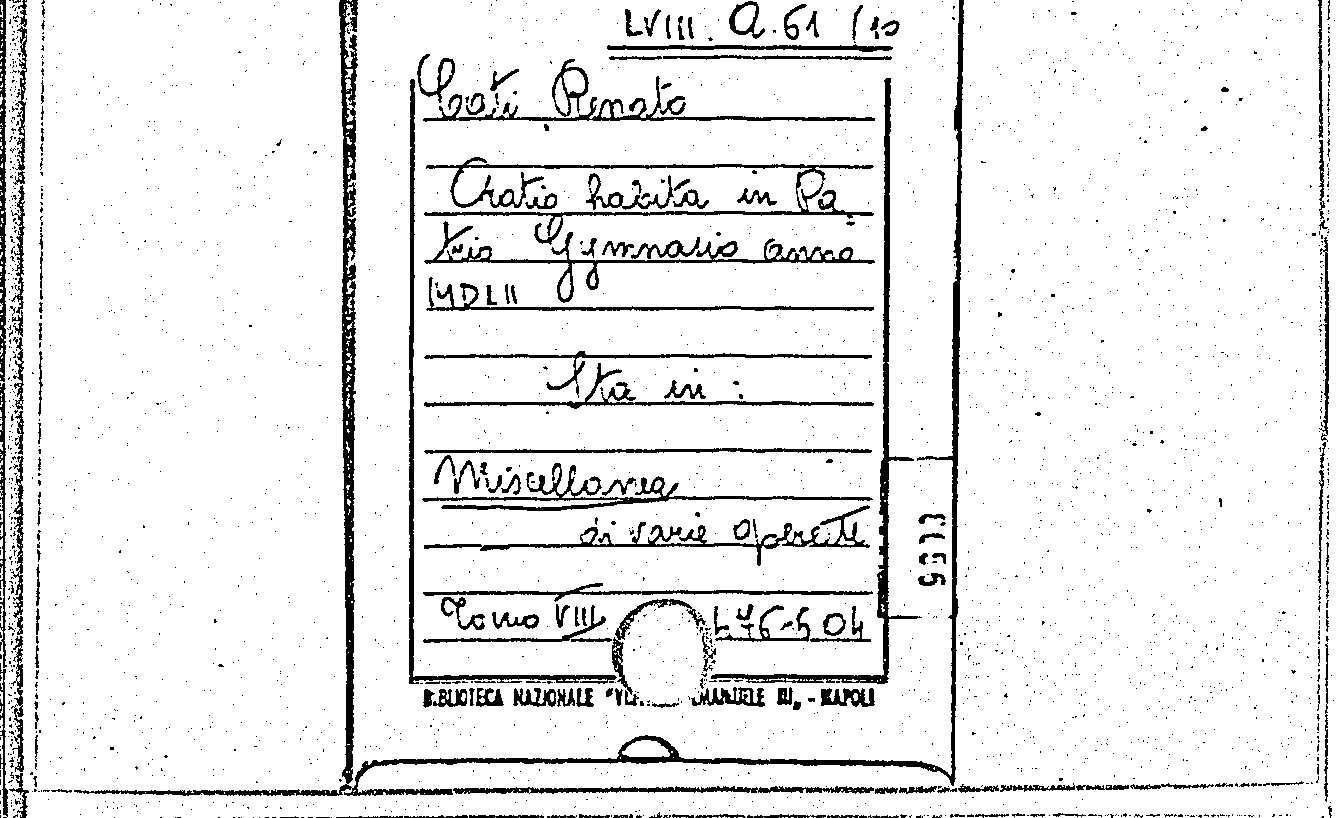 LVIII. A. 61 (10
Cati Renato
Oratio habita in Pa=
trio Gymnasio anno
MDLII
Sta in:
Miscellanea
di varie operette
Tomo VIII 476-504
BIBLIOTECA NAZIONALE "VITT. EMANUELE III" - NAPOLI